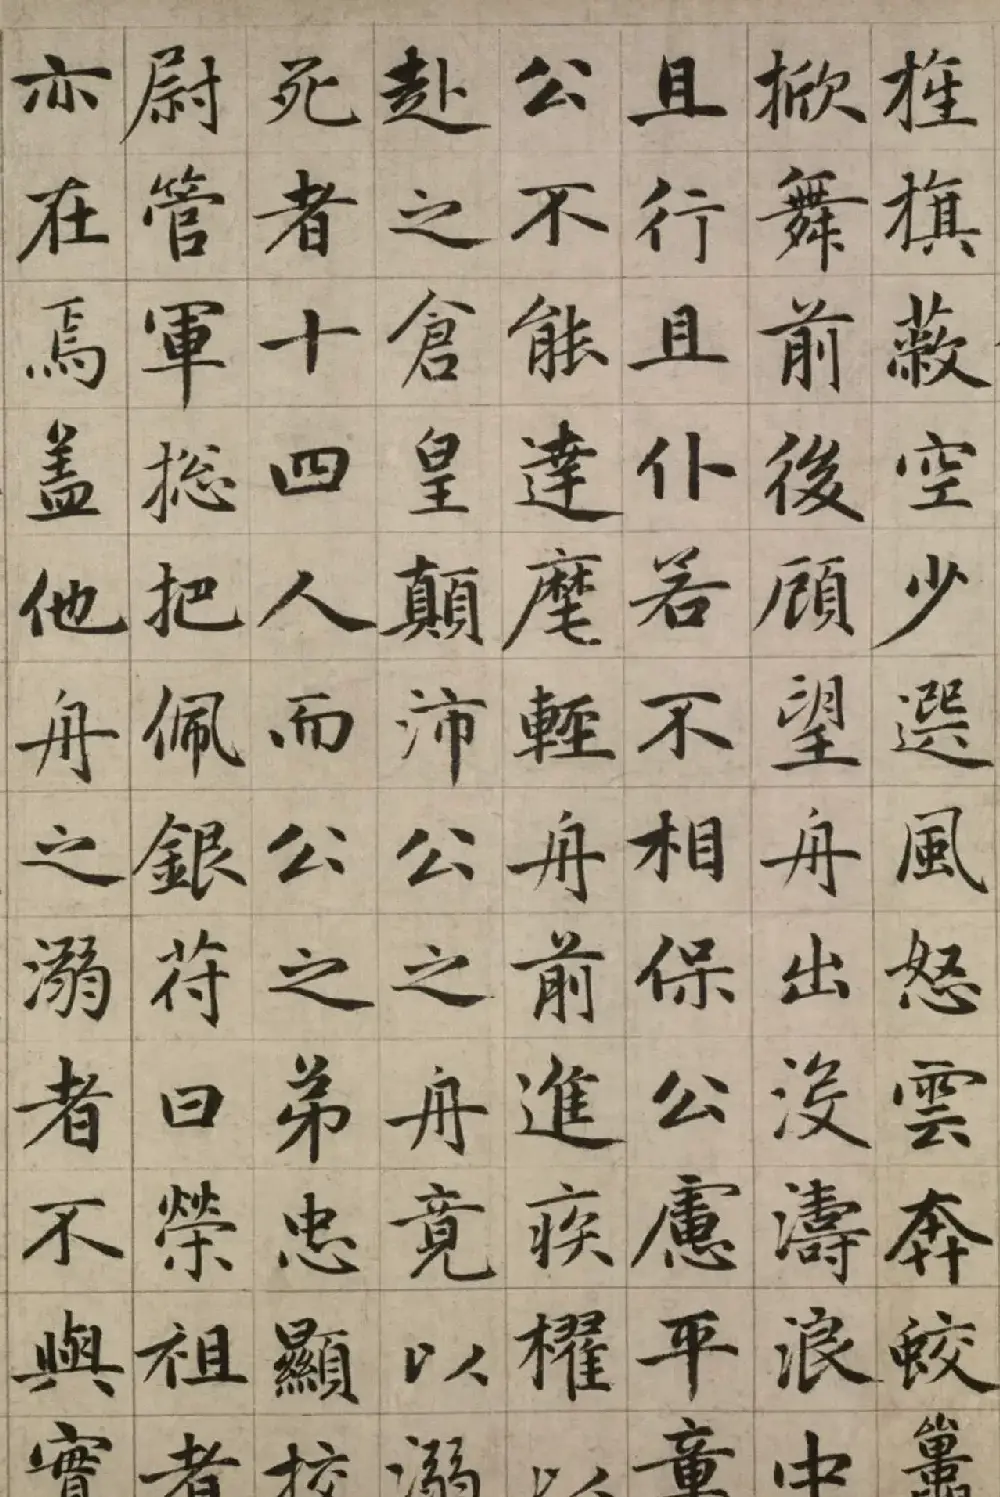 旌旗蔽空少選風怒雲奔蛟
掀舞前後顧望舟出没濤浪中
且行且仆若不相保公慮平章
公不能達麾輕舟前進疾櫂以
赴之倉皇顛沛公之舟竟以溺
死者十四人而公之弟忠顯校
尉管軍揔把佩銀苻曰榮祖者
亦在焉盖他舟之溺者不與實